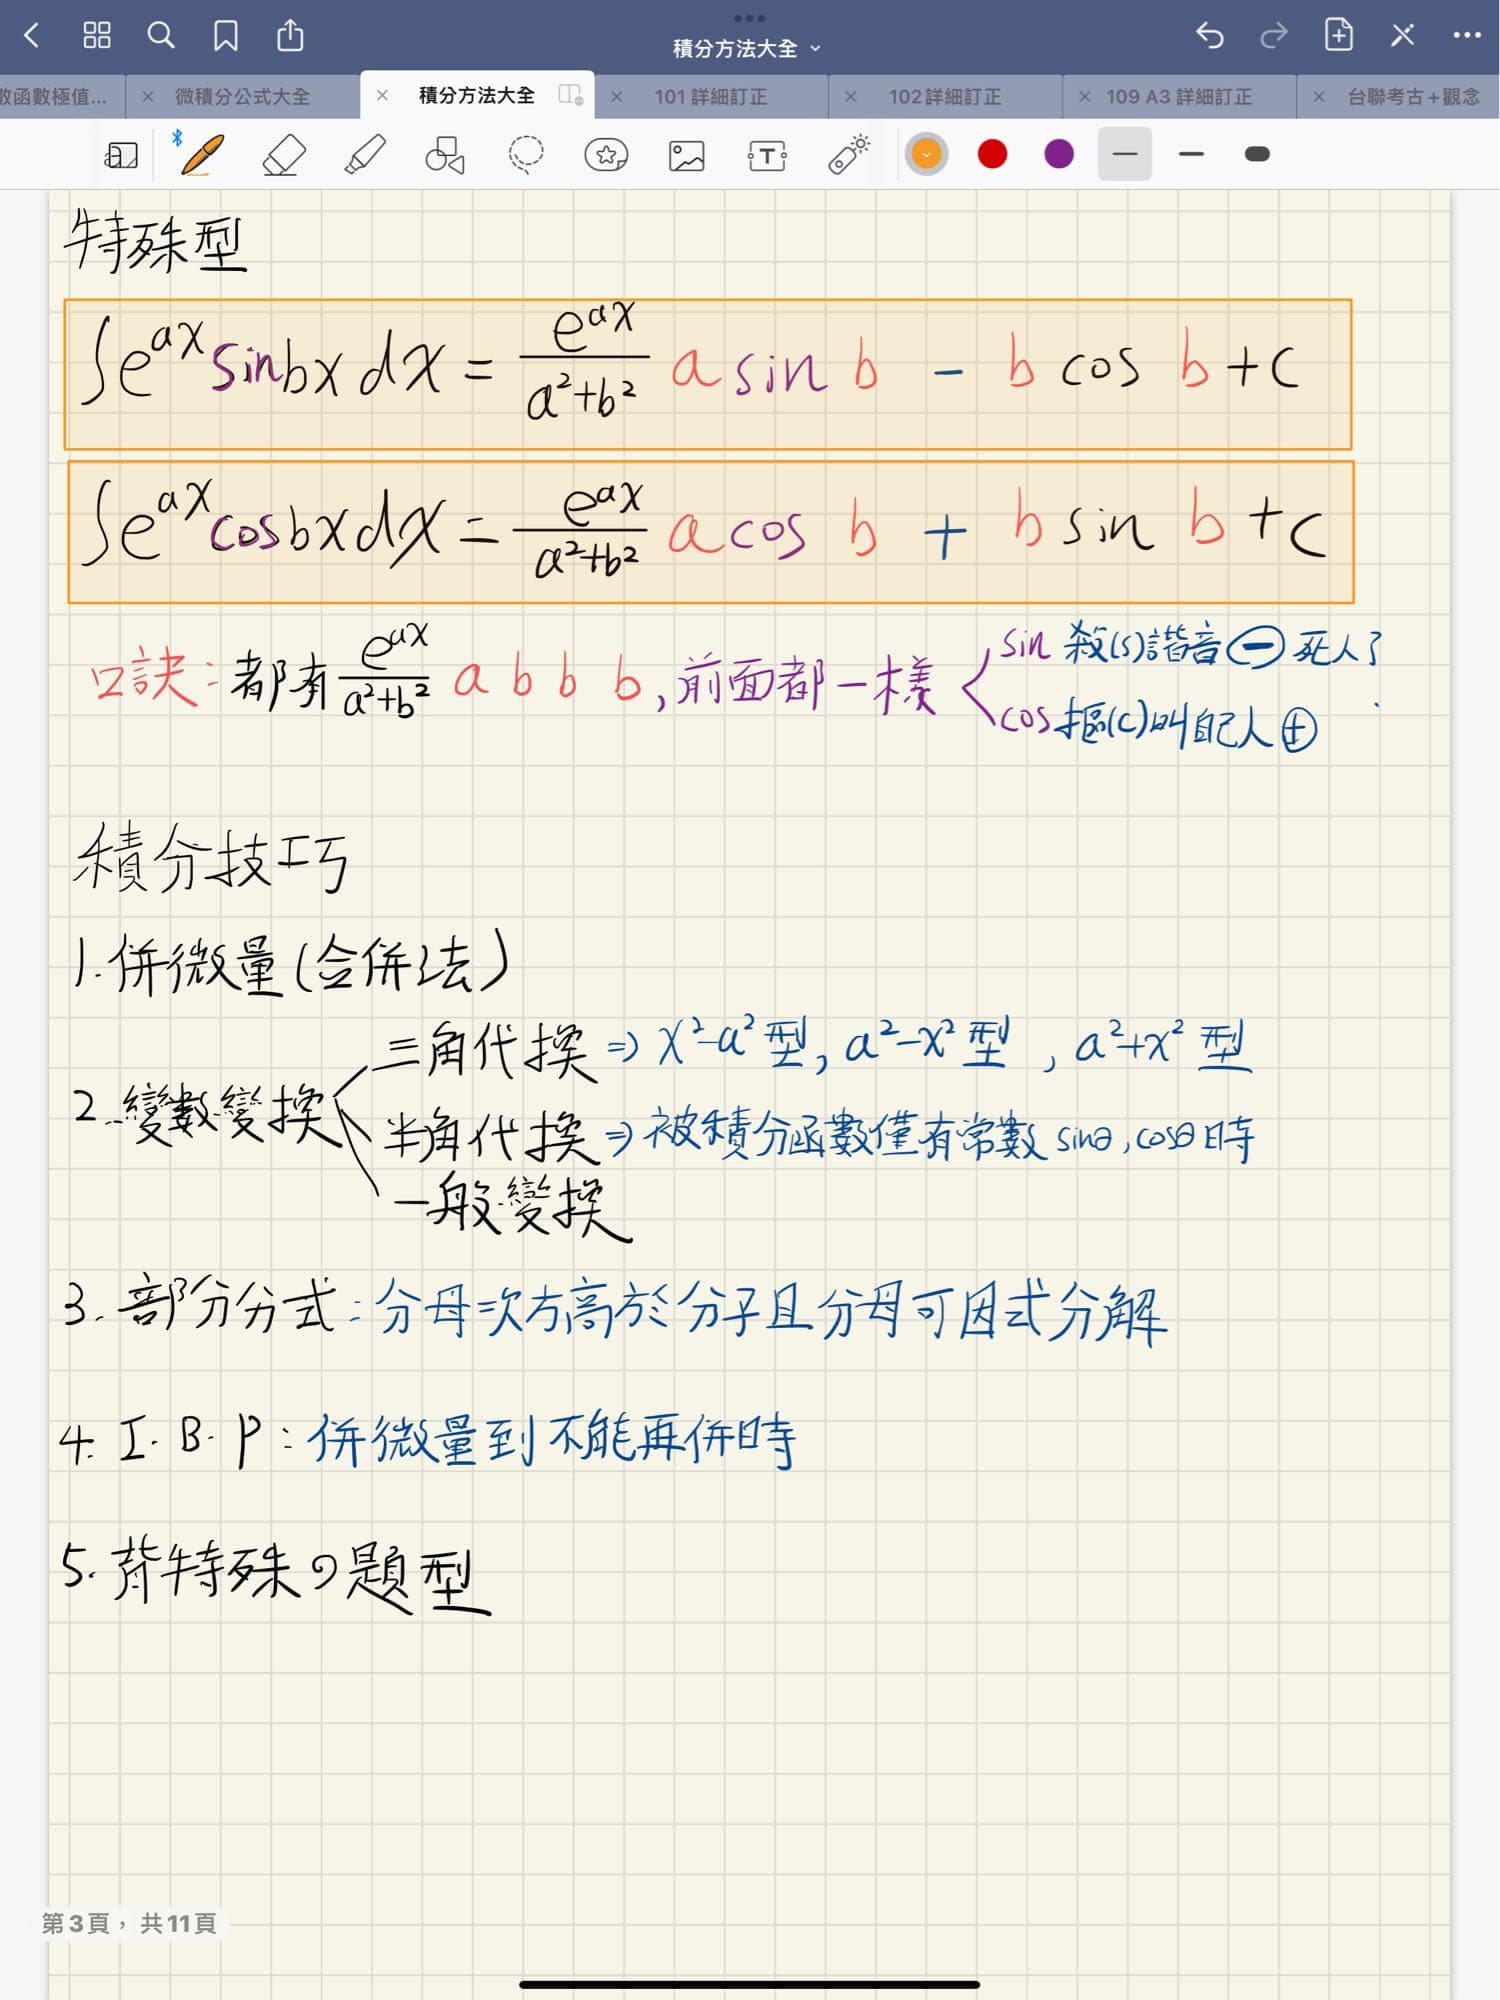 積分方法大全
數函數極值... 微積分公式大全 積分方法大全 101 詳細訂正 102詳細訂正 109 A3 詳細訂正 台聯考古+觀念
特殊型
∫e^{ax} sinbx dx = e^{ax}/(a²+b²) a sin b - b cos b + c
∫e^{ax} cosbx dx = e^{ax}/(a²+b²) a cos b + b sin b + c
口訣: 都有 e^{ax}/(a²+b²) a b b b, 前面都一樣
sin 殺(s)諧音⊖死人了
cos 摳(c)叫自己人⊕
積分技巧
1. 併微量(合併法)
2. 變數變換
三角代換 ⇒ x²-a² 型, a²-x² 型, a²+x² 型
半角代換 ⇒ 被積分函數僅有常數 sinθ, cosθ 時
一般變換
3. 部分分式: 分母次方高於分子且分母可因式分解
4. I. B. P: 併微量到不能再併時
5. 背特殊の題型
第3頁, 共11頁